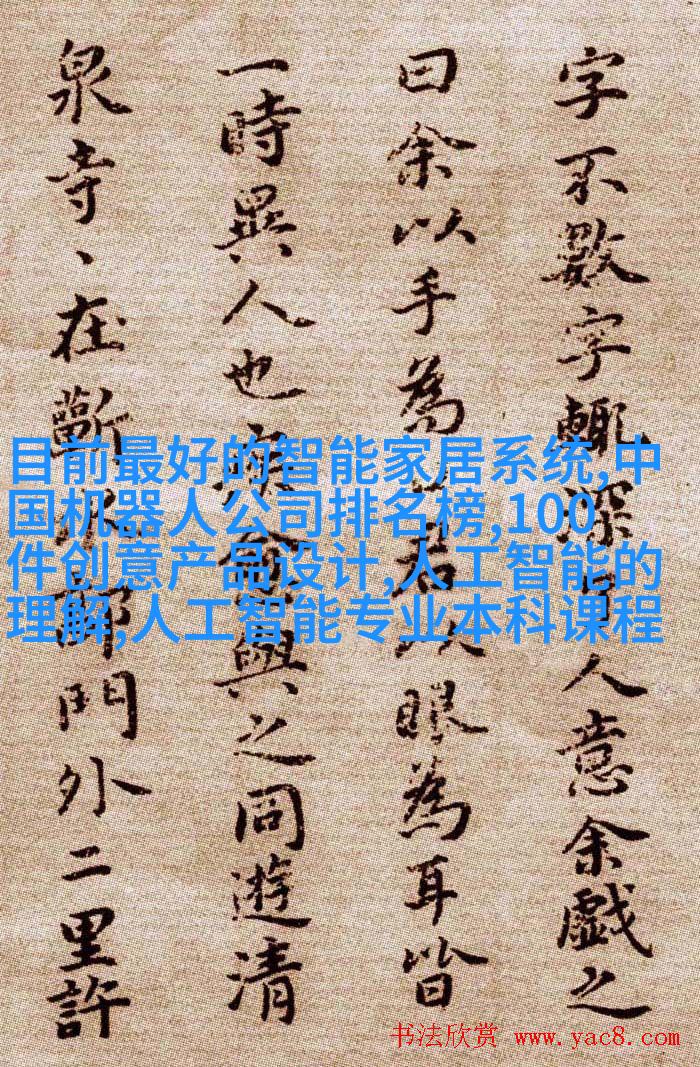 字不數字輒深人意余戲之
曰余以手為君以眼為耳皆
一時異人也疾愈與之同遊清
泉寺、在蘄水郭門外二里許
目前最好的智能家居系统,中
国机器人公司排名榜,100
件创意产品设计,人工智能的
理解,人工智能专业本科课程
书法欣赏 www.yac8.com